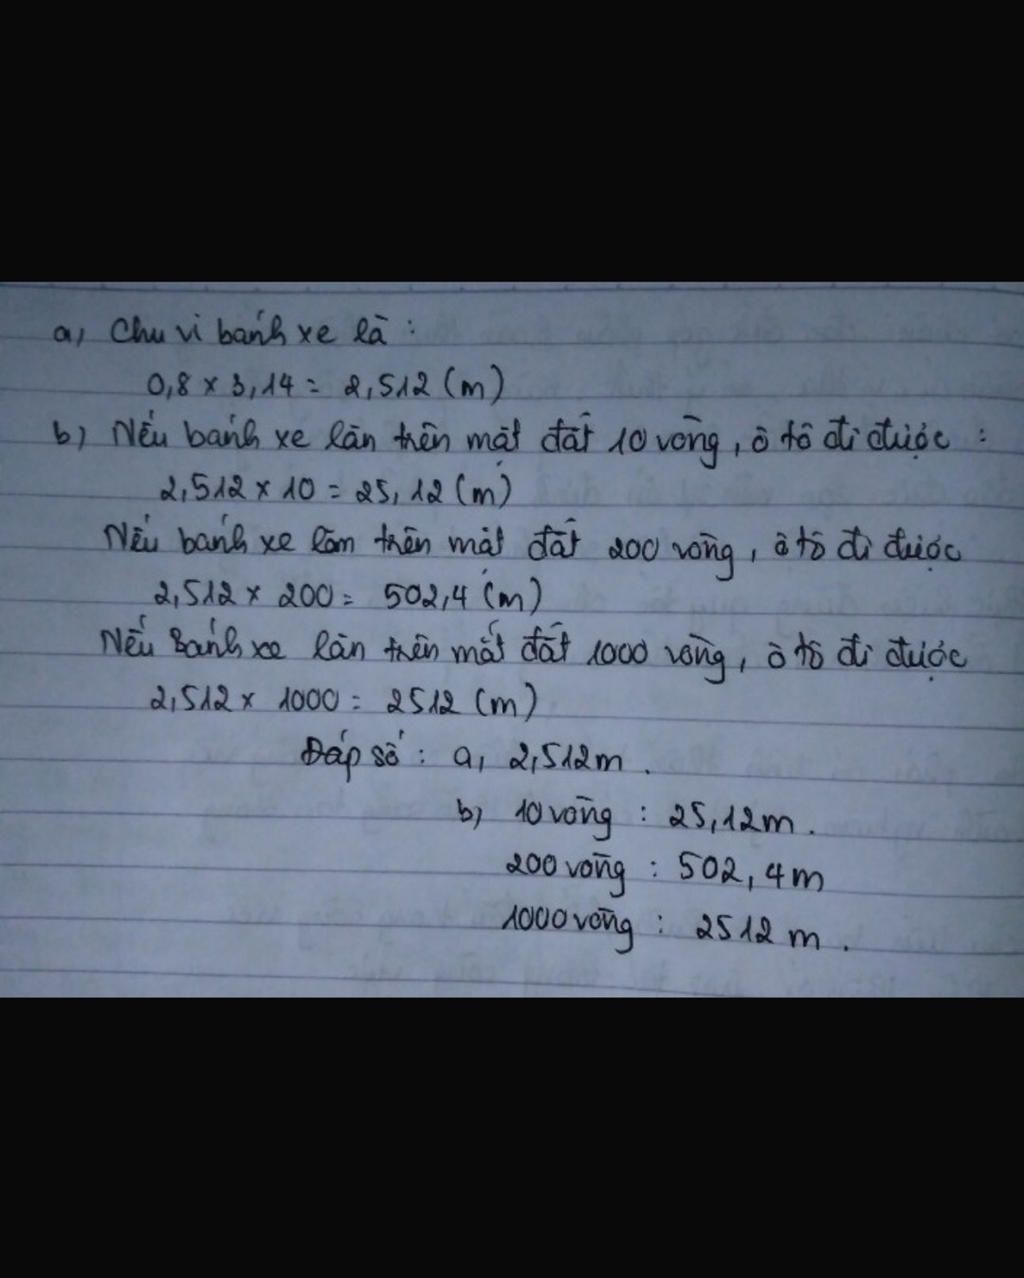 a, Chu vi bánh xe là :
0,8 x 3,14 = 2,512 (m)
b) Nếu bánh xe lăn trên mặt đất 10 vòng, ô tô đi được :
2,512 x 10 = 25,12 (m)
Nếu bánh xe lăn trên mặt đất 200 vòng, ô tô đi được
2,512 x 200 = 502,4 (m)
Nếu bánh xe lăn trên mặt đất 1000 vòng, ô tô đi được
2,512 x 1000 = 2512 (m)
Đáp số : a, 2,512m.
b) 10 vòng : 25,12m.
200 vòng : 502,4m
1000 vòng : 2512 m.